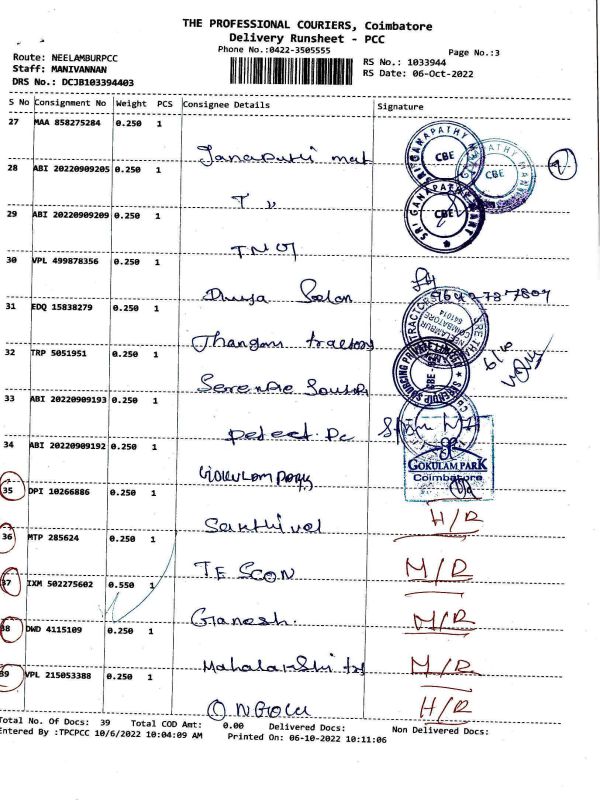 THE PROFESSIONAL COURIERS, Coimbatore
Delivery Runsheet - PCC
Phone No.:0422-3505555
Page No.:3
Route: NEELAMBURPCC
Staff: MANIVANNAN
DRS No.: DCJB103394403
RS No.: 1033944
RS Date: 06-Oct-2022
S No Consignment No Weight PCS Consignee Details Signature
27 MAA 858275284 0.250 1
SRI GANAPATHY MART CBE
28 ABI 20220909205 0.250 1
T "
29 ABI 20220909209 0.250 1
30 VPL 499878356 0.250 1
Salon
31 EDQ 15838279 0.250 1
Thangam tractors
32 TRP 5051951 0.250 1
33 ABI 20220909193 0.250 1
34 ABI 20220909192 0.250 1
GOKULAM PARK
Coimbatore
Gokulam park
35 DPI 10266886 0.250 1
Sakthivel H/R
36 MTP 285624 0.250 1
TESCON M/R
37 IXM 502275602 0.550 1
Ganesh. M/R
38 DWD 4115109 0.250 1
Mahalakshi M/R
39 VPL 215053388 0.250 1
H/R
Total No. Of Docs: 39 Total COD Amt: 0.00 Delivered Docs: Non Delivered Docs:
Entered By :TPCPCC 10/6/2022 10:04:09 AM Printed On: 06-10-2022 10:11:06